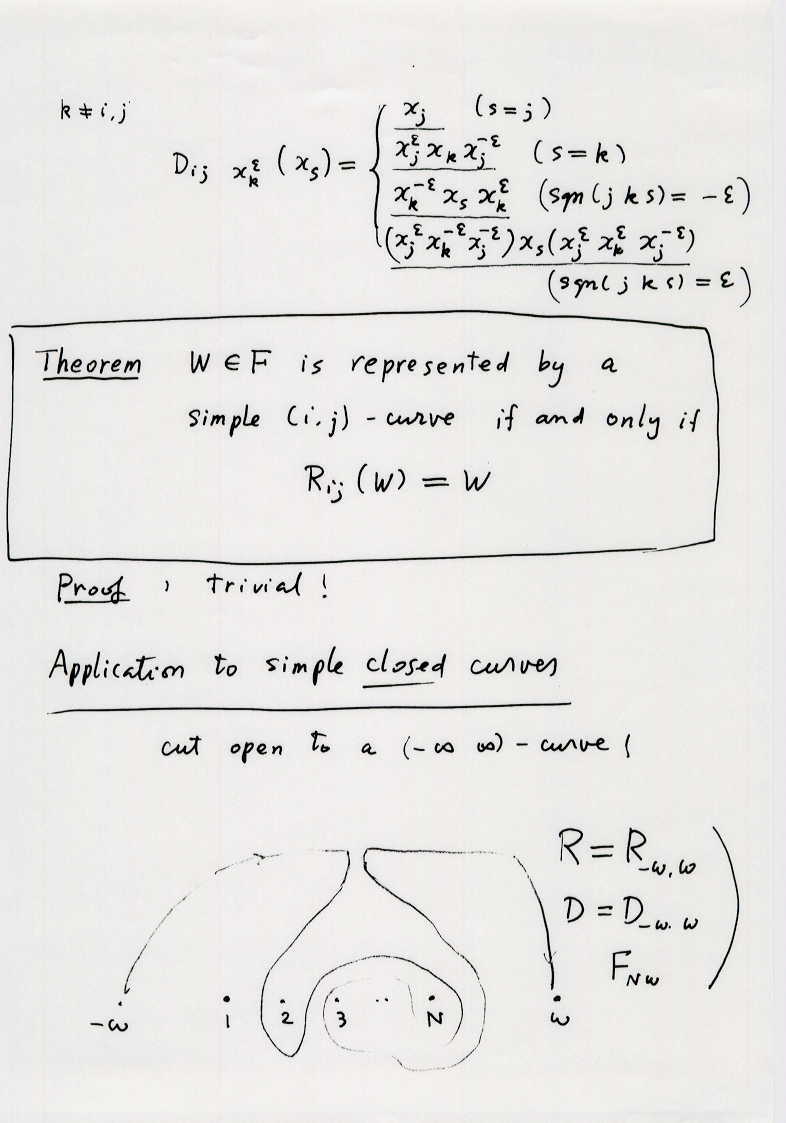 k ≠ i,j
D_{ij x_k^ε} (x_s) = { x_j (s=j)
x_j^ε x_k x_j^{-ε} (s=k)
x_k^{-ε} x_s x_k^ε (sgn(j k s) = -ε)
(x_j^ε x_k^{-ε} x_j^{-ε}) x_s (x_j^ε x_k^ε x_j^{-ε})
(sgn(j k s) = ε)
Theorem W ∈ F is represented by a
simple (i.j) - curve if and only if
R_{ij} (W) = W
Proof, trivial!
Application to simple closed curves
cut open to a (-∞ ∞) - curve!
R = R_{-ω,ω}
D = D_{-ω.ω}
F_{Nω}
-ω 1 2 3 .. N ω